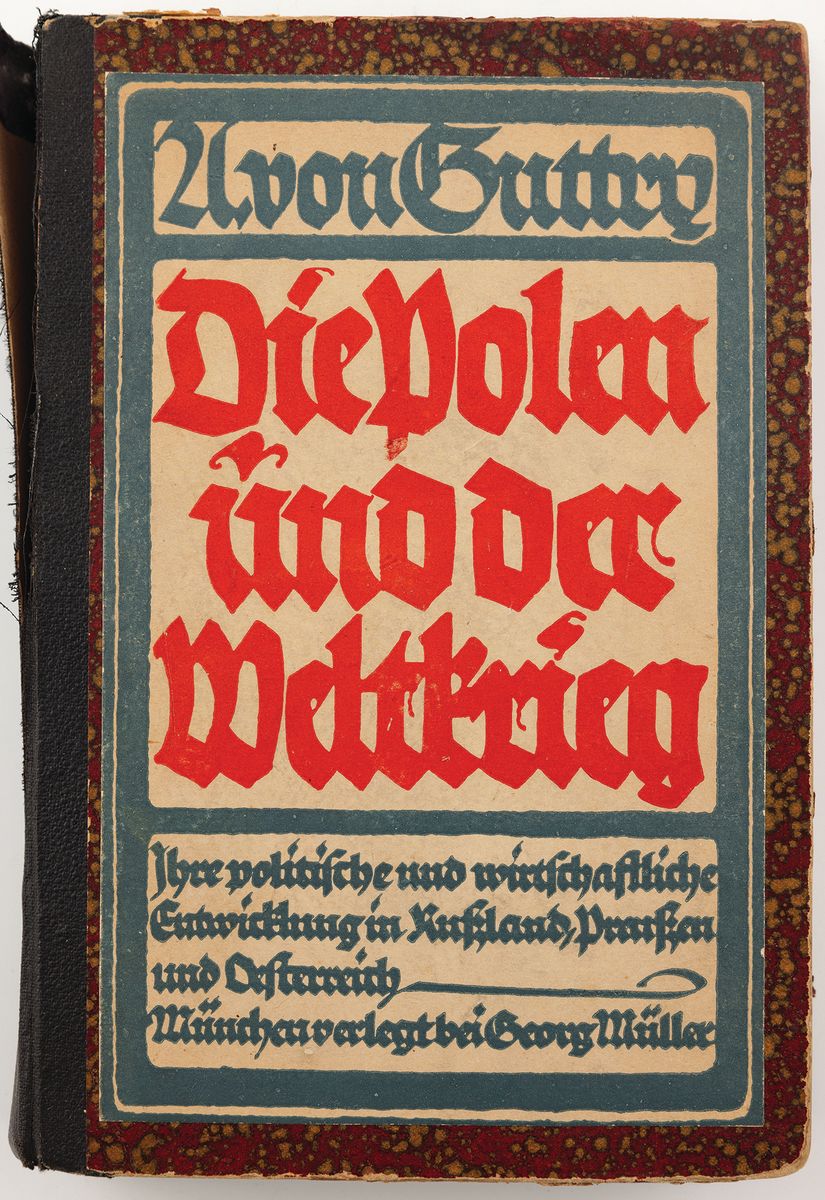 A. von Guttry
Die Polen
und der
Weltkrieg
Ihre politische und wirtschaftliche
Entwicklung in Rußland, Preußen
und Oesterreich
München verlegt bei Georg Müller